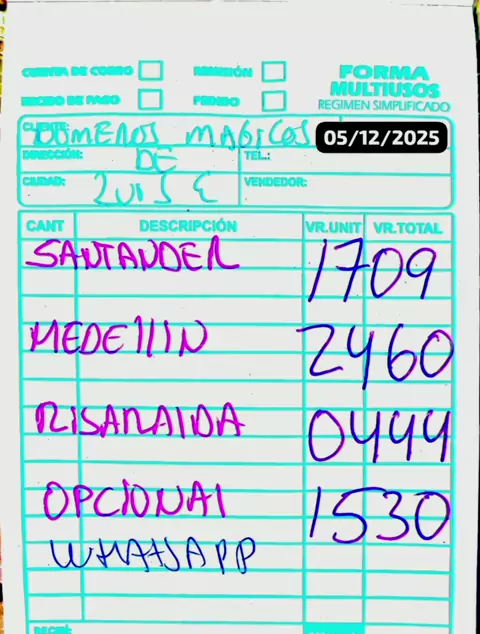 CUENTA DE COBRO REMISIÓN
RECIBO DE PAGO PEDIDO
FORMA
MULTIUSOS
REGIMEN SIMPLIFICADO
CLIENTE: NUMEROS MAGICOS 05/12/2025
DIRECCIÓN: DE TEL.:
CIUDAD: LUIS E VENDEDOR:
CANT DESCRIPCIÓN VR.UNIT VR.TOTAL
SANTANDER 1709
MEDELLIN 2460
RISARALDA 0444
OPCIONAL 1530
WHATSAPP
RECIBÍ: